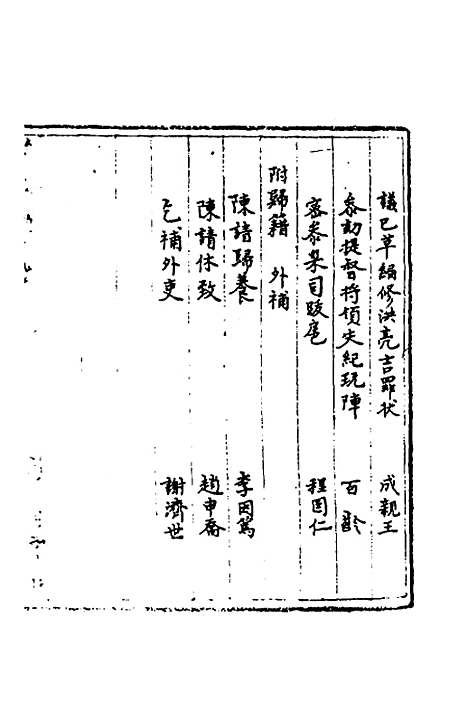 議已革編修洪亮吉罪狀 成親王
參劾提督將領失紀玩陣 百齡
密參臬司跋扈 程國仁
附歸籍 外補
陳請歸養 李因篤
陳請休致 趙申喬
乞補外吏 謝濟世